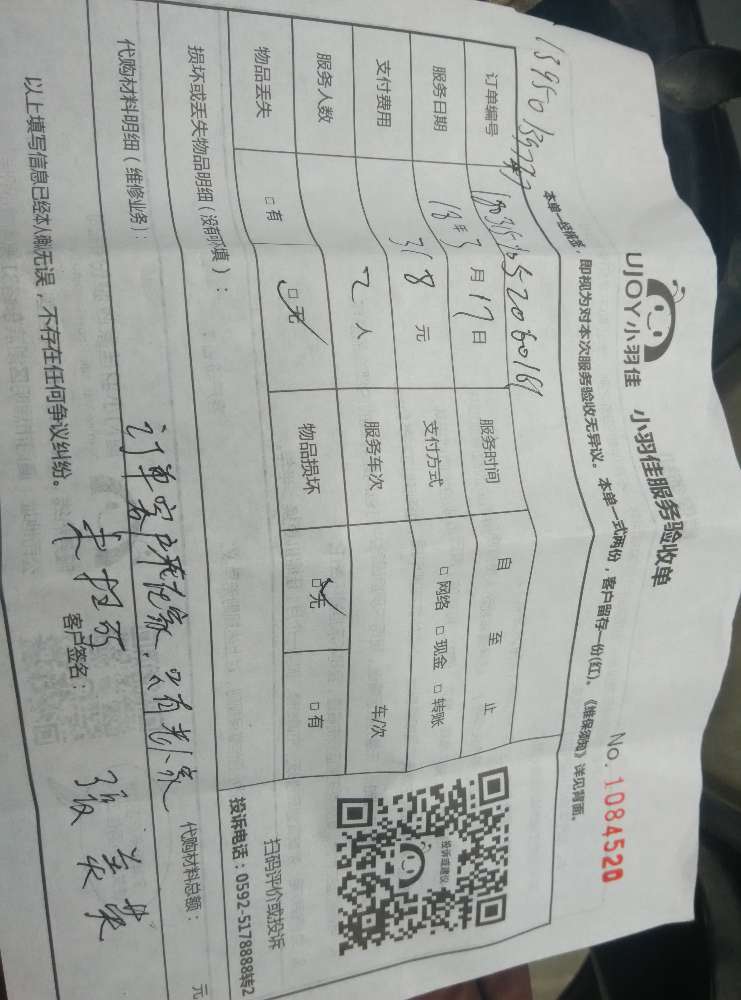 UJOY小羽佳 小羽佳服务验收单
No. 1084520
即视为对本次服务验收无异议。本单一式两份，客户留存一份(红)。《维保须知》详见背面。
订单编号 服务时间 自 至 止
服务日期 18年3月17日 支付方式 □网络 □现金 □转账
支付费用 318元 服务车次 车/次
服务人数 2人
物品丢失 □有 □无 物品损坏 □无 □有
投诉或建议
扫码评价或投诉
投诉电话：0592-5178888转2
损坏或丢失物品明细（没有不填）：
代购材料明细（维修业务）： 代购材料总额： 元
订单客户不在家，只有老人家
以上填写信息已经本人确认无误，不存在任何争议纠纷。 客户签名：